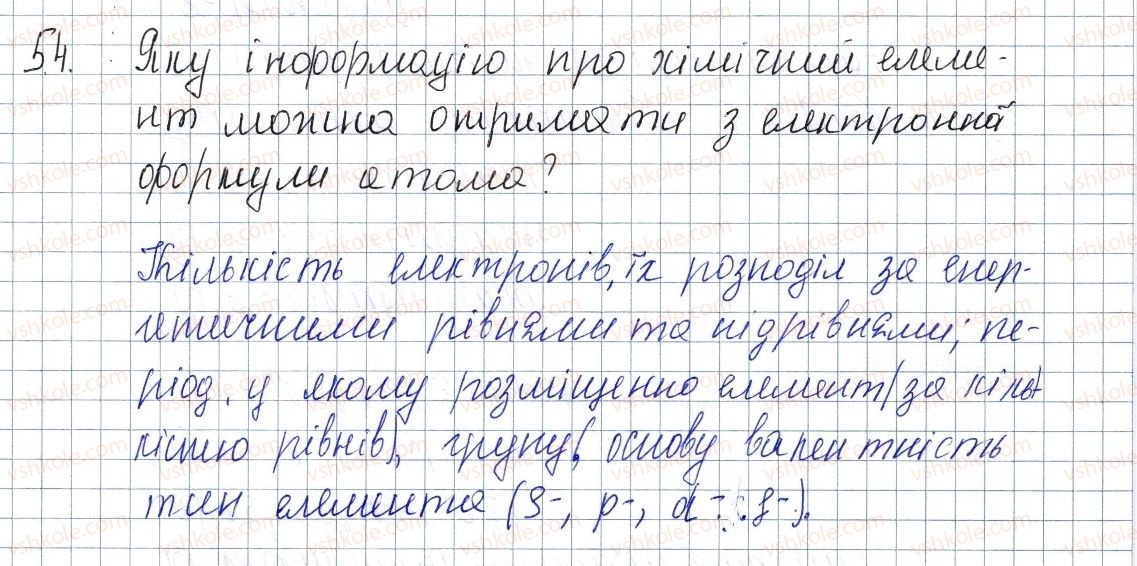 54. Яку інформацію про хімічний елеме-
нт можна отримати з електронної
формули атома?
Кількість електронів, їх розподіл за енер-
гетичними рівнями та підрівнями; пе-
ріод, у якому розміщенно елемент (за кіль-
кістю рівнів), групу, основу валентність
тип елемента (s-, p-, d-, f-).